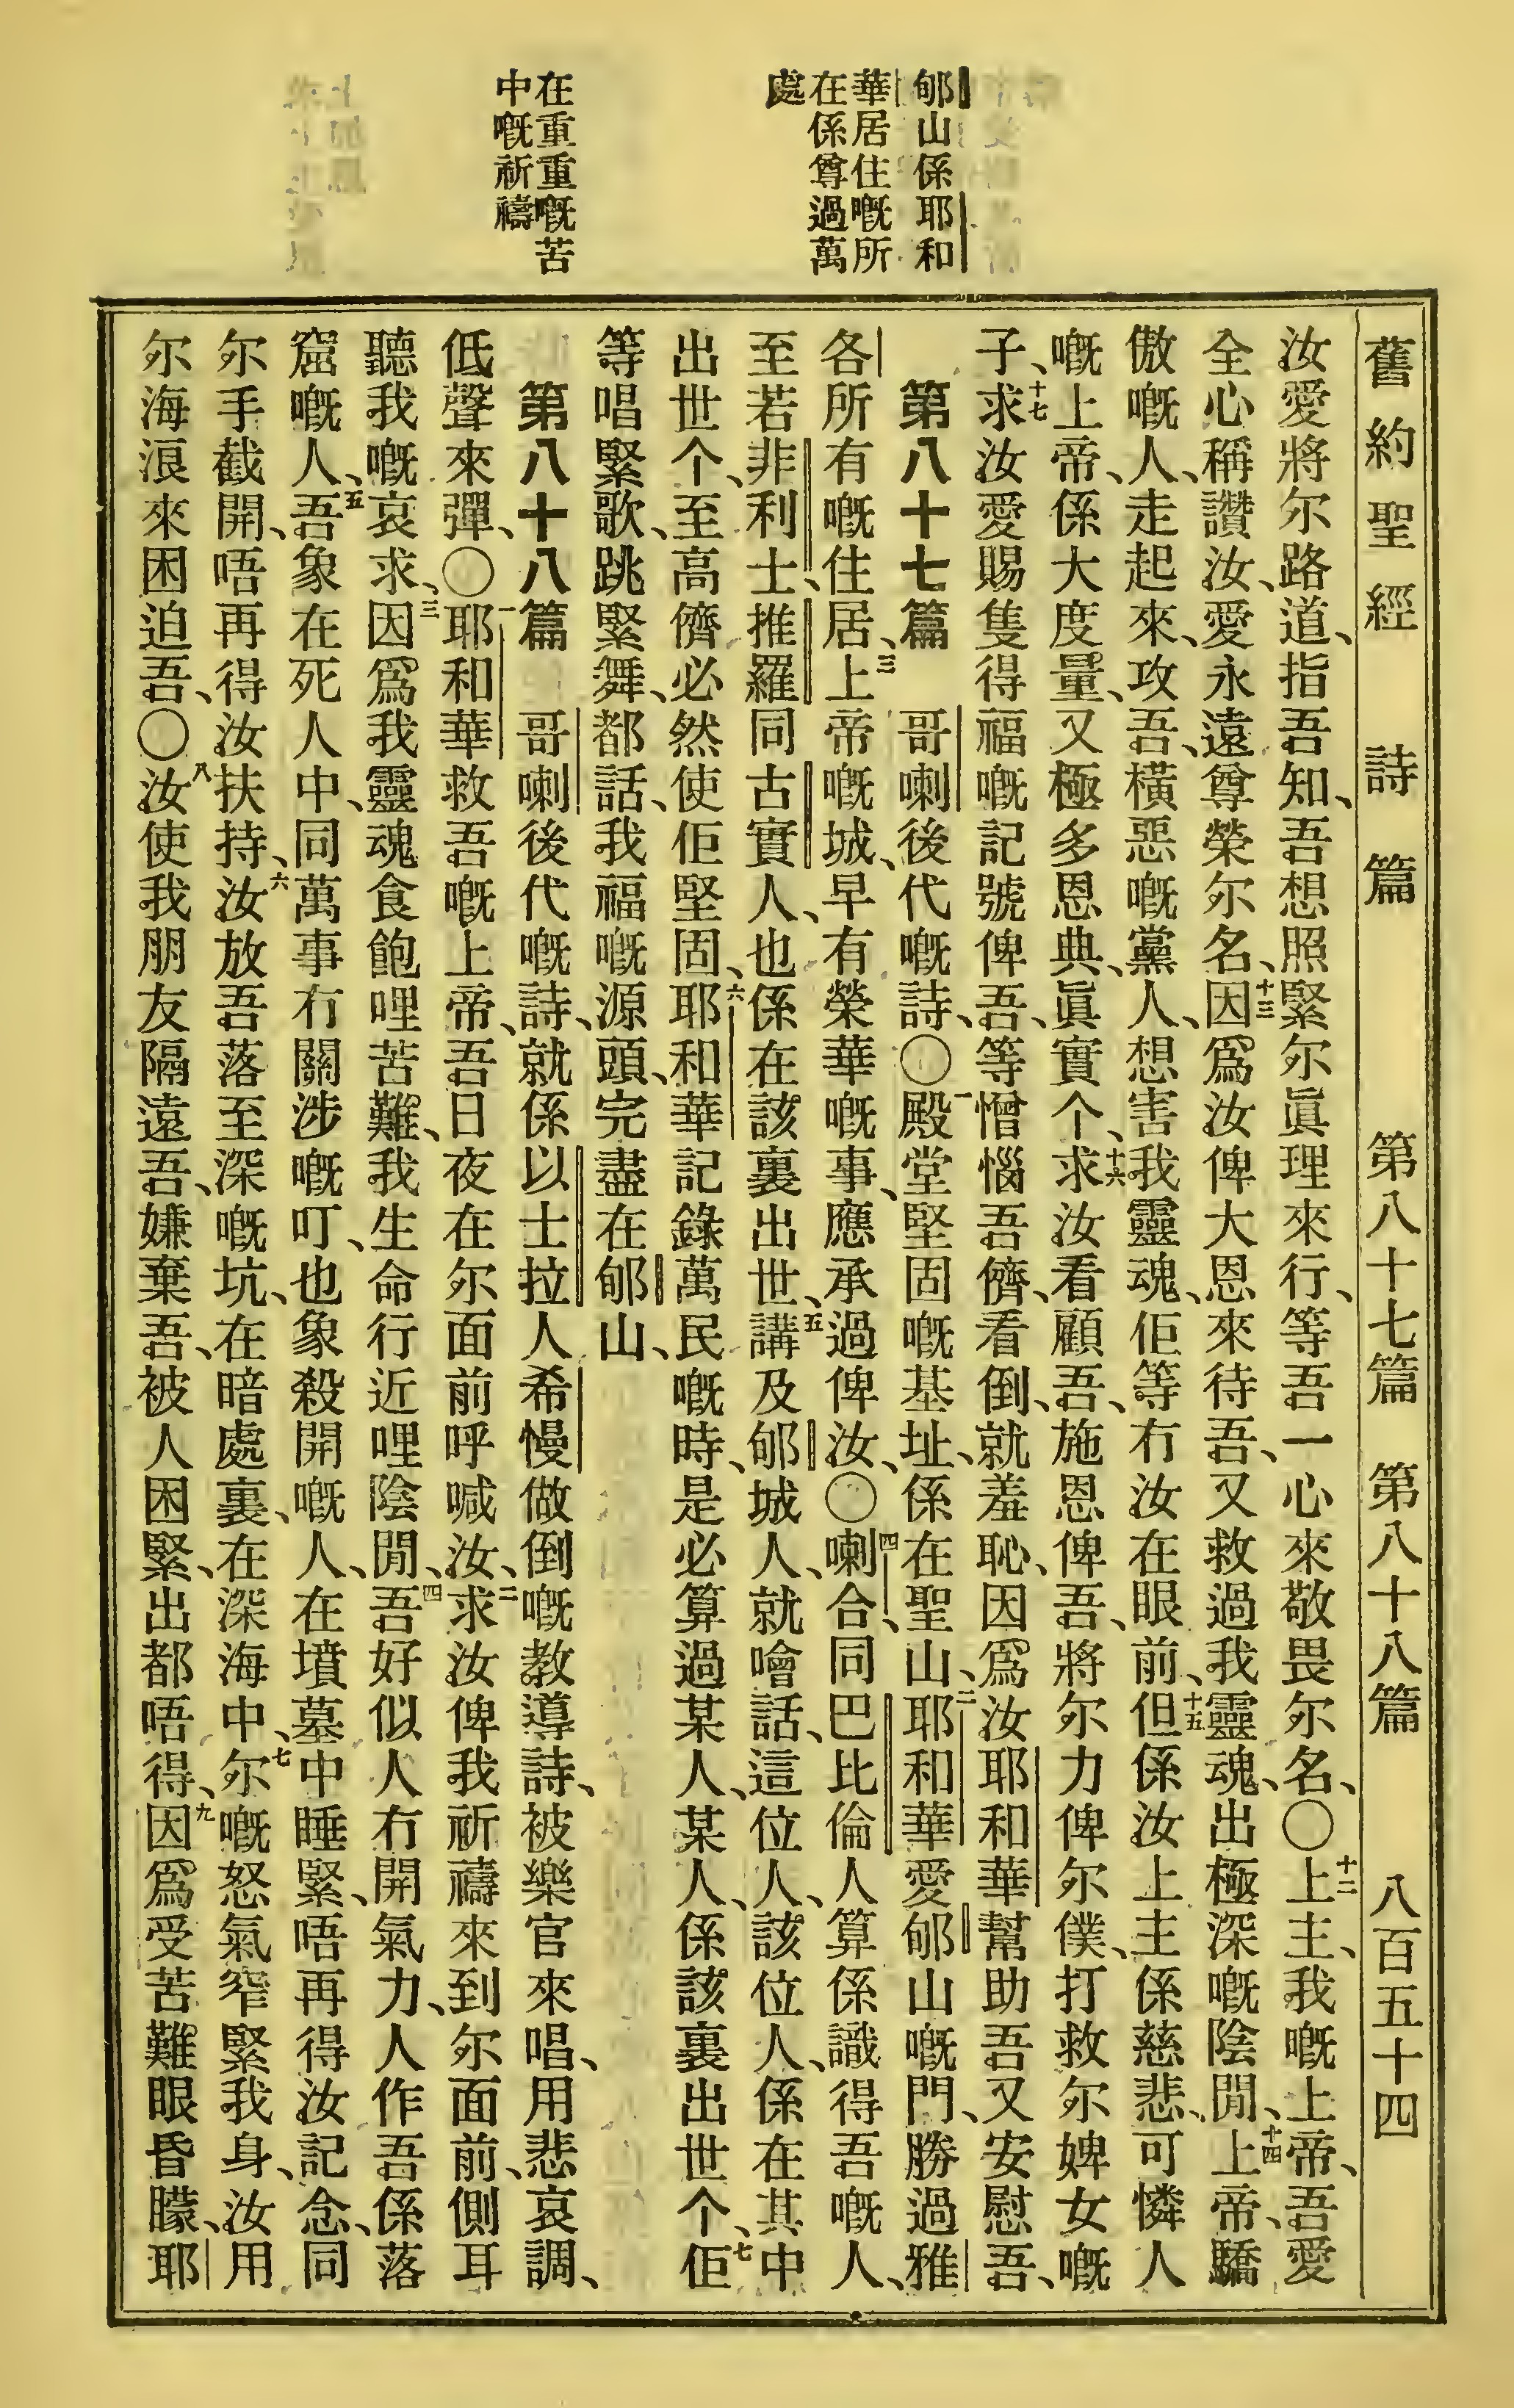 郇山係耶和
華居住嘅所
在係尊過萬
處
在重重嘅苦
中嘅祈禱
舊約聖經 詩篇 第八十七篇 第八十八篇 八百五十四
汝愛將尔路道、指吾知、吾想照緊尔眞理來行、等吾一心來敬畏尔名、〇十二上主、我嘅上帝、吾愛
全心稱讚汝、愛永遠尊榮尔名、十三因爲汝俾大恩來待吾、又救過我靈魂、出極深嘅陰間、十四上帝、驕
傲嘅人、走起來、攻吾、橫惡嘅黨人、想害我靈魂、佢等冇汝在眼前、十五但係汝上主係慈悲、可憐人
嘅上帝、係大度量、又極多恩典、眞實个、十六求汝看顧吾、施恩俾吾、將尔力俾尔僕、打救尔婢女嘅
子、十七求汝愛賜隻得福嘅記號俾吾、等憎惱吾儕、看倒、就羞恥、因爲汝耶和華幫助吾又安慰吾、
第八十七篇 哥喇後代嘅詩、〇一殿堂堅固嘅基址、係在聖山、二耶和華愛郇山嘅門、勝過雅
各所有嘅住居、三上帝嘅城、早有榮華嘅事、應承過俾汝、〇四喇合、同巴比倫人算係識得吾嘅人、
至若非利士、推羅同古實人、也係在該裏出世、五講及郇城人、就噲話、這位人、該位人、係在其中
出世个、至高儕必然使佢堅固、六耶和華記錄萬民嘅時、是必算過某人、某人、係該裏出世个、七佢
等唱緊歌、跳緊舞、都話、我福嘅源頭、完盡在郇山、
第八十八篇 哥喇後代嘅詩、就係以士拉人希慢做倒嘅教導詩、被樂官來唱、用悲哀調、
低聲來彈、〇一耶和華救吾嘅上帝、吾日夜在尔面前呼喊汝、二求汝俾我祈禱來到尔面前、側耳
聽我嘅哀求、三因爲我靈魂食飽哩苦難、我生命行近哩陰間、四吾好似人冇開氣力、人作吾係落
窟嘅人、五吾象在死人中、同萬事冇關涉嘅叮、也象殺開嘅人、在墳墓中睡緊、唔再得汝記念、同
尔手截開、唔再得汝扶持、六汝放吾落至深嘅坑、在暗處裏、在深海中、七尔嘅怒氣窄緊我身、汝用
尔海浪來困迫吾、〇八汝使我朋友隔遠吾、嫌棄吾、被人困緊、出都唔得、九因爲受苦難眼昏朦、耶